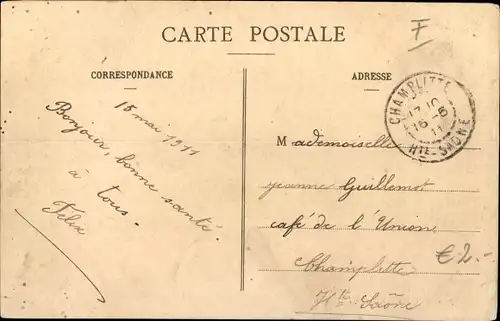 CARTE POSTALE
F
CORRESPONDANCE
ADRESSE
CHAMPLITTE
17 10
16 -5
11
HTE-SAÔNE
15 mai 1911
Bonjour, bonne santé
à tous.
Félix
Mademoiselle
Jeanne Guillemot
café de l'Union
Champlitte
Hte Saône
€ 2.-